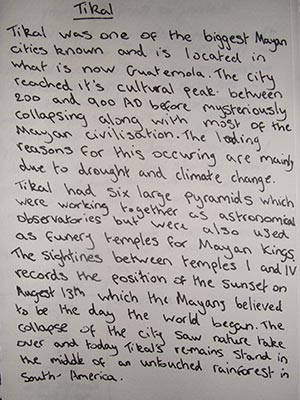 Tikal
Tikal was one of the biggest Mayan
cities known and is located in
what is now Guatemala. The city
reached it's cultural peak between
200 and 900 AD before mysteriously
collapsing along with most of the
Mayan civilisation. The leding
reasons for this occuring are mainly
due to drought and climate change.
Tikal had six large pyramids which
were working together as astronomical
observatories but were also used
as funery temples for Mayan Kings.
The sightines between temples I and IV
records the position of the sunset on
August 13th which the Mayans believed
to be the day the world began. The
collapse of the city saw nature take
over and today Tikal's remains stand in
the middle of an untouched rainforest in
South-America.